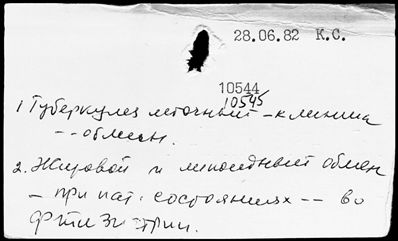 28.06.82 К.С.
10544
10545
1 Туберкулез легочный - клиника
-- обмен.
2. Жировой и липоидный обмен
- при пат. состояниях -- во
фтизиатрии.